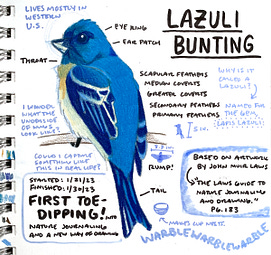 LIVES MOSTLY IN
WESTERN
U.S.
EYE RING
EAR PATCH
THROAT
LAZULI
BUNTING
SCAPULAR FEATHERS
MEDIAN COVERTS
GREATER COVERTS
SECONDARY FEATHERS
PRIMARY FEATHERS
WHY IS IT
CALLED A
LAZULI?
NAMED FOR
THE GEM,
LAPIS LAZULI!
I WONDER
WHAT THE
UNDERSIDE
LOOK
LIKE?
COULD I CAPTURE
SOMETHING LIKE
THIS IN REAL LIFE?
RUMP!
TAIL
STARTED: 1/21/23
FINISHED: 1/30/23
FIRST TOE-
DIPPING! INTO
NATURE JOURNALING
AND A NEW WAY OF DRAWING
BASED ON ARTWORK
BY JOHN MUIR LAWS
"THE LAWS GUIDE TO
NATURE JOURNALING
AND DRAWING,"
PG. 183
MAKES CUP NESTS
WARBLEWARBLEWARBLE